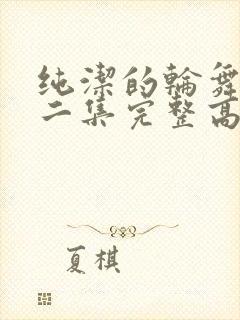 纯潔的輪舞
二集完整高
夏棋